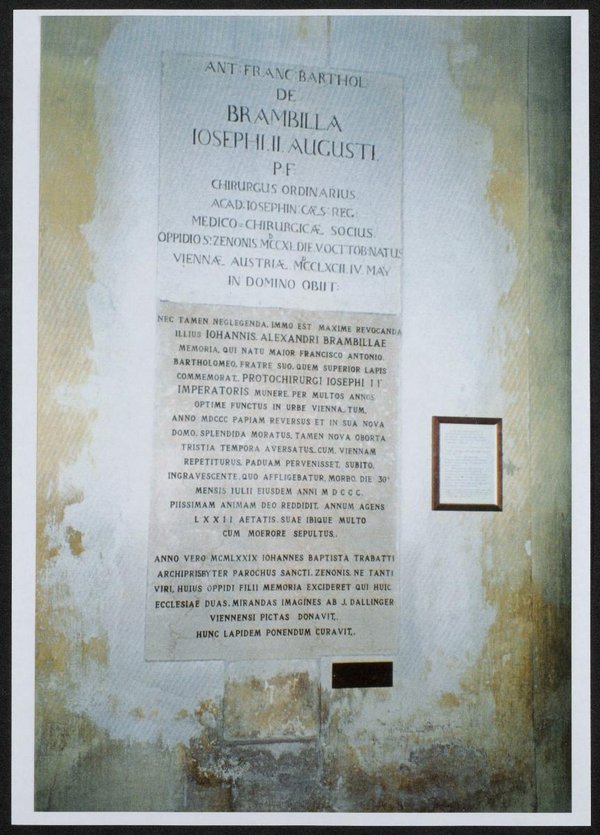 ANT·FRANC·BARTHOL·
DE
BRAMBILLA
IOSEPHI.II. AUGUSTI.
P·F
CHIRURGUS ORDINARIUS
ACAD·IOSEPHIN·CÆS·REG·
MEDICO=CHIRURGICÆ SOCIUS
OPPIDO S·ZENONIS MDCCXI. DIE V OCTTOB·NATUS
VIENNÆ AUSTRIÆ MDCCLXCII. IV. MAY
IN DOMINO OBIIT:
NEC TAMEN NEGLEGENDA, IMMO EST MAXIME REVOCANDA
ILLIUS IOHANNIS. ALEXANDRI BRAMBILLAE
MEMORIA, QUI NATU MAIOR FRANCISCO ANTONIO
BARTHOLOMEO, FRATRE SUO, QUEM SUPERIOR LAPIS
COMMEMORAT, PROTOCHIRURGI IOSEPHI II
IMPERATORIS MUNERE, PER MULTOS ANNOS
OPTIME FUNCTUS IN URBE VIENNA, TUM,
ANNO MDCCC PAPIAM REVERSUS ET IN SUA NOVA
DOMO, SPLENDIDA MORATUS, TAMEN NOVA OBORTA
TRISTIA TEMPORA AVERSATUS, CUM, VIENNAM
REPETITURUS, PADUAM PERVENISSET, SUBITO,
INGRAVESCENTE, QUO AFFLIGEBATUR, MORBO, DIE 30ª
MENSIS IULII EIUSDEM ANNI MDCCC,
PIISSIMAM ANIMAM DEO REDDIDIT, ANNUM AGENS
LXXII AETATIS SUAE IBIQUE MULTO
CUM MOERORE SEPULTUS.
ANNO VERO MCMLXXIX IOHANNES BAPTISTA TRABATTI
ARCHIPRISBYTER PAROCHUS SANCTI ZENONIS, NE TANTI
VIRI, HUIUS OPPIDI FILII MEMORIA EXCIDERET QUI HUIC
ECCLESIAE DUAS, MIRANDAS IMAGINES AB J. DALLINGER
VIENNENSI PICTAS DONAVIT,
HUNC LAPIDEM PONENDUM CURAVIT.